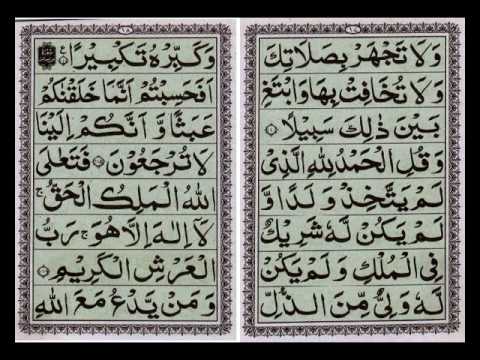 وَلَا تَجْهَرْ بِصَلَاتِكَ
وَلَا تُخَافِتْ بِهَا وَابْتَغِ
بَيْنَ ذٰلِكَ سَبِيلًا
وَقُلِ الْحَمْدُ لِلّٰهِ الَّذِىْ
لَمْ يَتَّخِذْ وَلَدًا وَّ
لَمْ يَكُنْ لَّهٗ شَرِيْكٌ
فِى الْمُلْكِ وَلَمْ يَكُنْ
لَّهٗ وَلِىٌّ مِّنَ الذُّلِّ
وَكَبِّرْهُ تَكْبِيْرًا
اَفَحَسِبْتُمْ اَنَّمَا خَلَقْنٰكُمْ
عَبَثًا وَّ اَنَّكُمْ اِلَيْنَا
لَا تُرْجَعُوْنَ فَتَعٰلَى
اللّٰهُ الْمَلِكُ الْحَقُّ ج
لَآ اِلٰهَ اِلَّا هُوَ ج رَبُّ
الْعَرْشِ الْكَرِيْمِ
وَمَنْ يَّدْعُ مَعَ اللّٰهِ